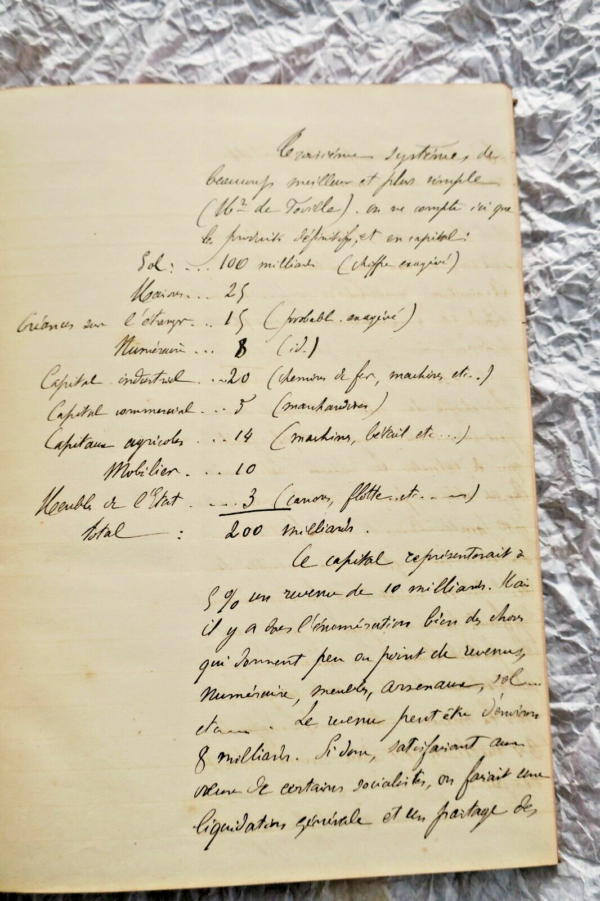 Troisième système de
beaucoup meilleur et plus simple
(Mr de Foville). on ne compte ici que
les produits définitifs, et en capital :
Sol : ... 100 milliards (chiffre exagéré)
Maisons ... 25
Créances sur l'étranger .. 15 (probablt. exagéré)
Numéraire ... 8 (id.)
Capital industriel ... 20 (chemins de fer, machines etc...)
Capital commercial ... 5 (marchandises)
Capitaux agricoles ... 14 (machines, bétail etc....)
Mobilier .... 10
Meubles de l'Etat ..... 3 (canons, flotte..etc......)
Total : 200 milliards.
Ce capital représenterait à
5 % un revenu de 10 milliards. Mais
il y a dans l'énumération bien des choses
qui donnent peu ou point de revenus,
Numéraire, meubles, arsenaux, sol....
etc..... . Le revenu peut être d'environ
8 milliards. Si donc, satisfaisant aux
vœux de certains socialistes, on faisait une
liquidation générale et un partage des